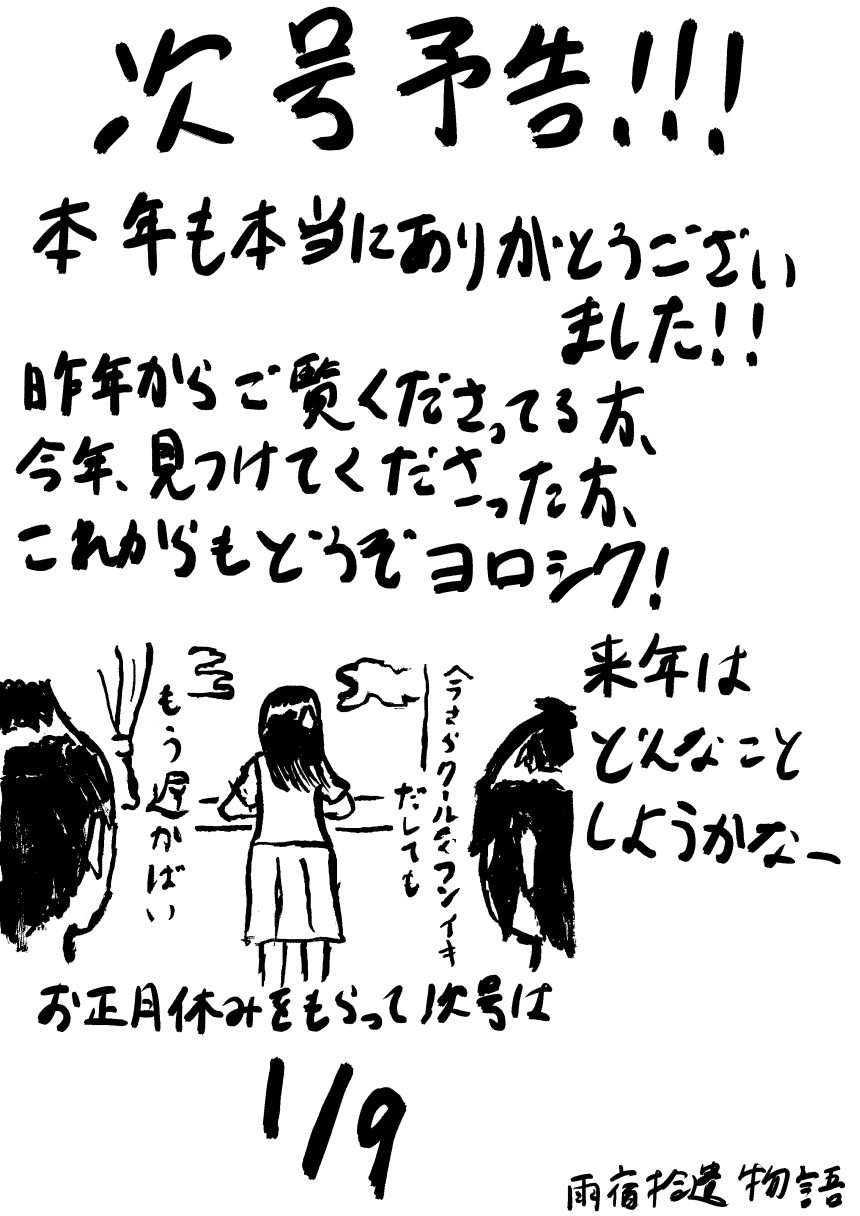 次号予告!!!
本年も本当にありがとうござい
ました!!
昨年からご覧くださってる方、
今年、見つけてくださった方、
これからもどうぞヨロシク!
来年は
どんなこと
しようかなー
今さらクールなフンイキ
だしても
もう遅かばい
お正月休みをもらって次号は
1/9
雨宿拾遺物語